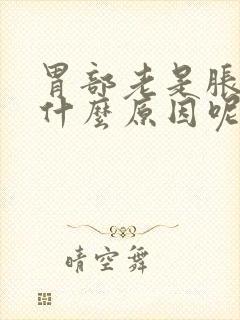 胃部老是脹
什麼原因呢
晴空舞